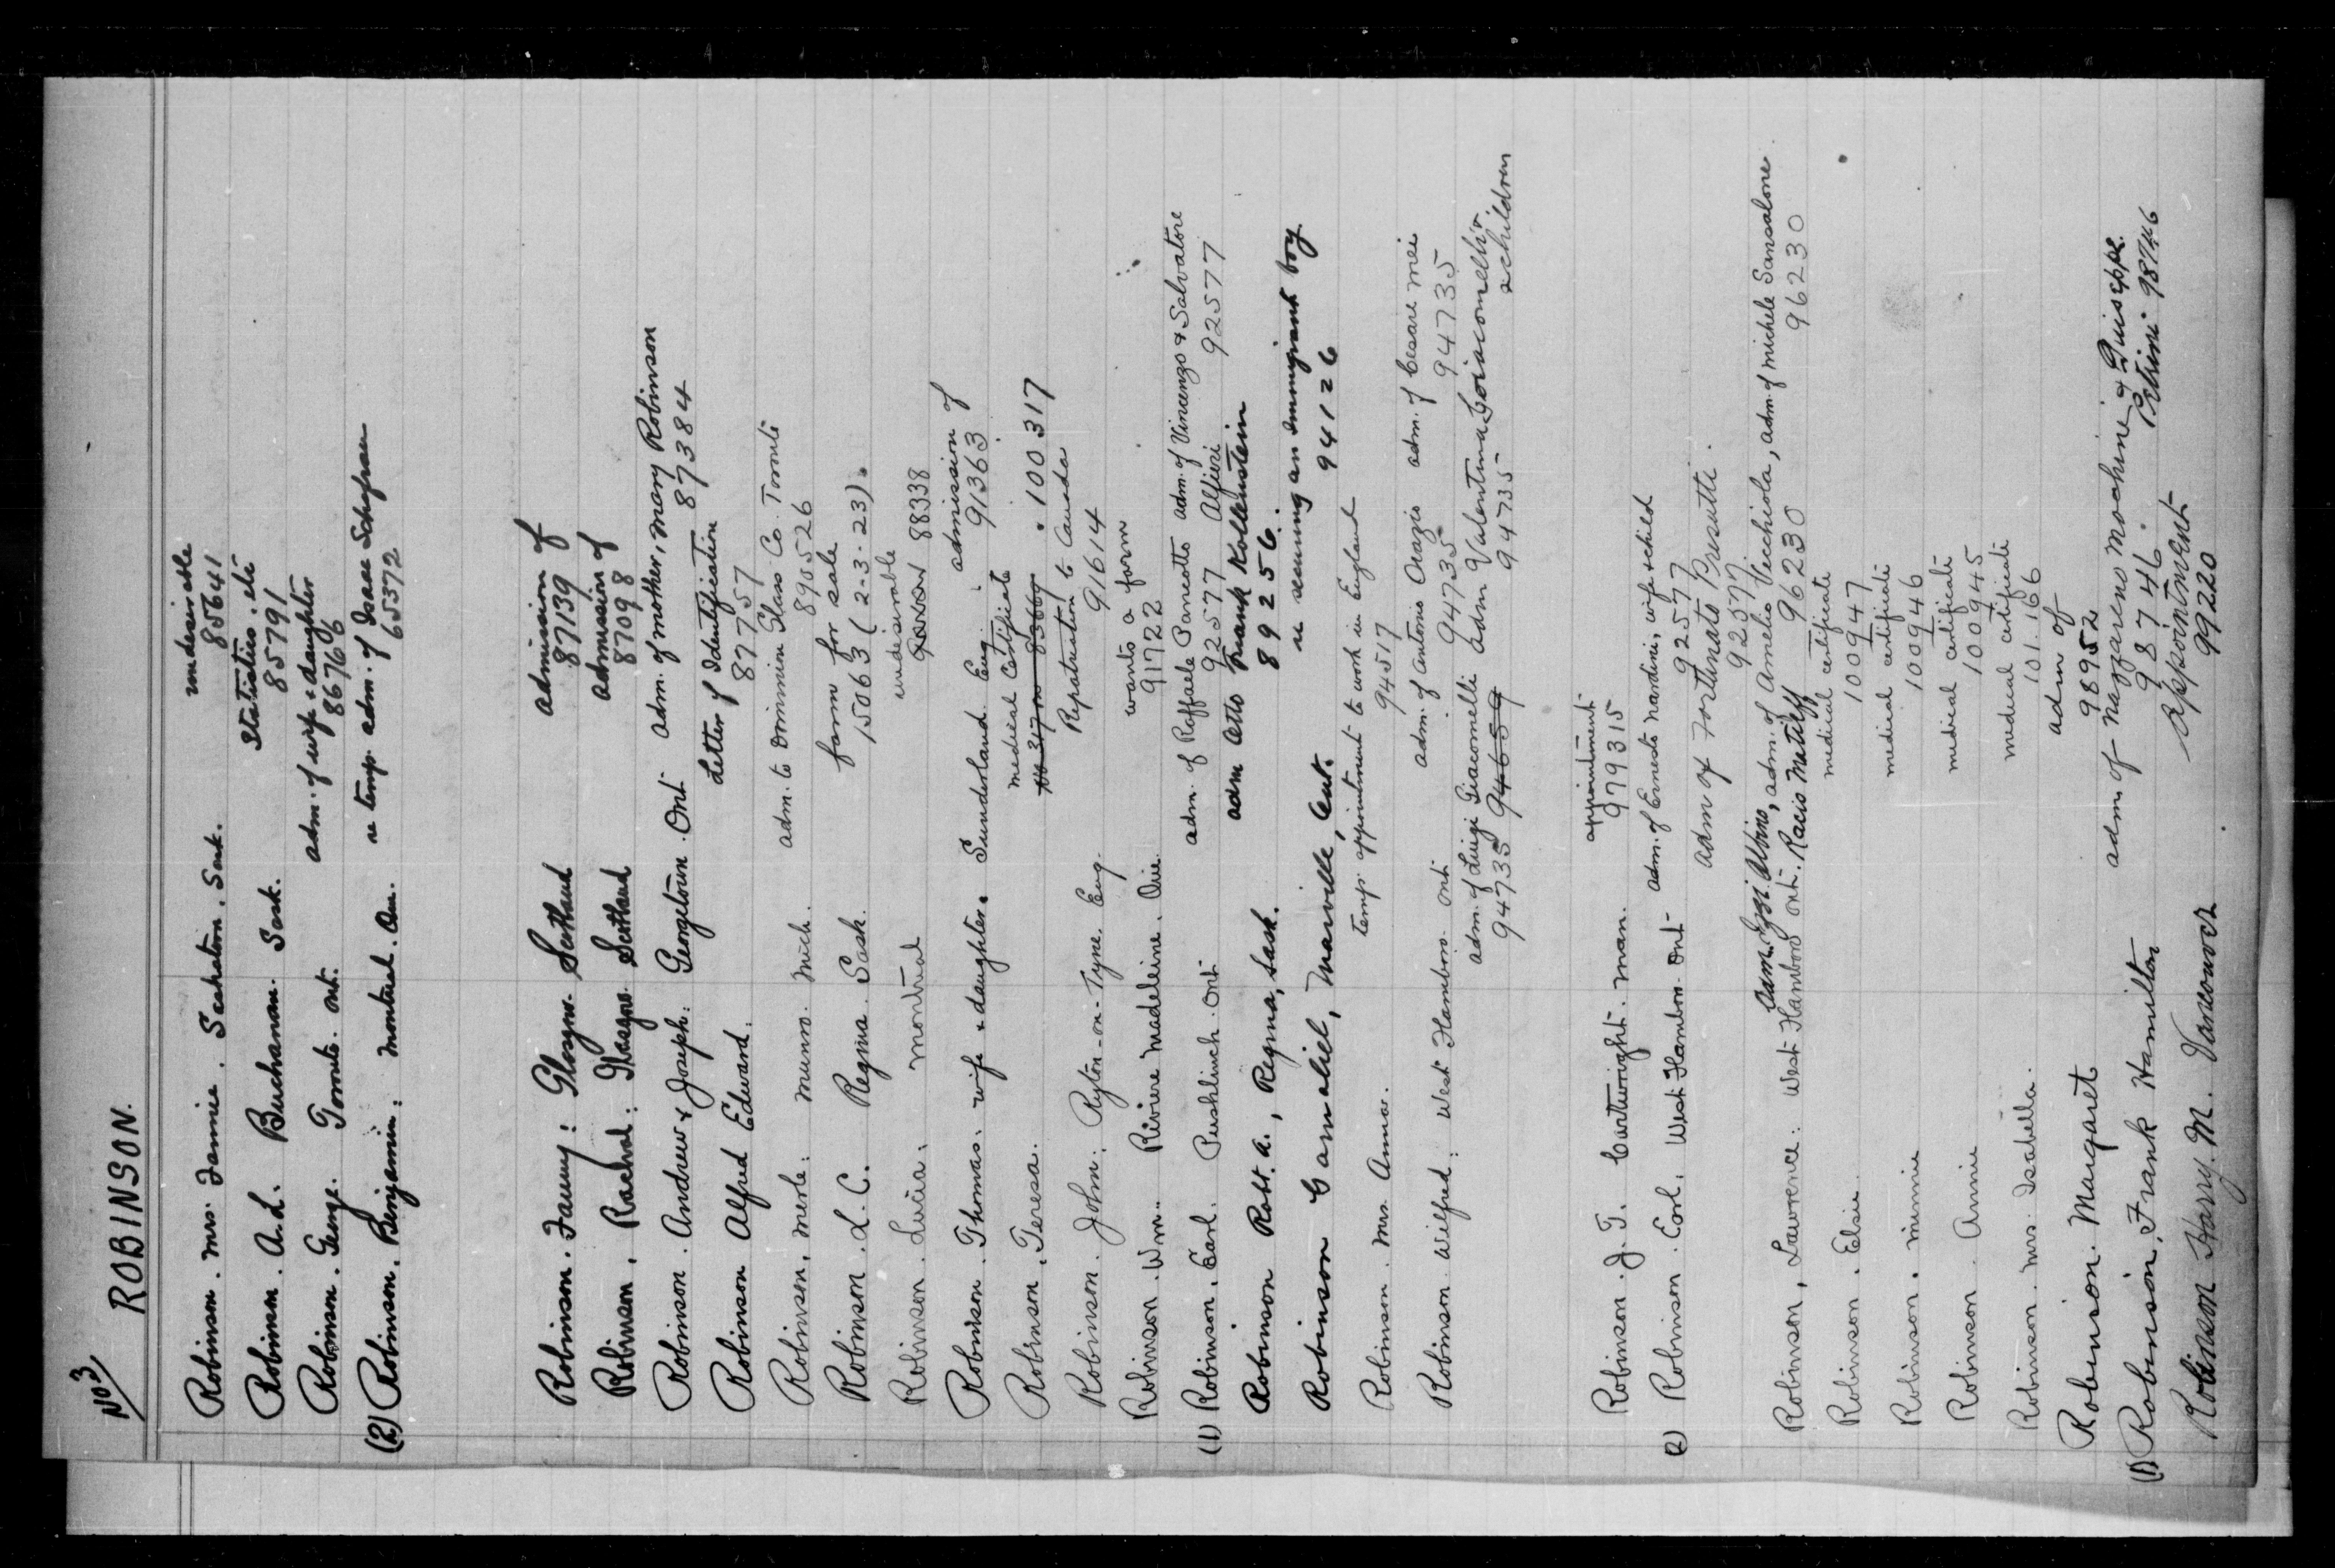 No 3
ROBINSON.
Robinson. Mrs. Fannie. Saskatoon. Sask. undesirable
85641
Robinson. A.L. Buchanan. Sask. Statistics. etc
85791
Robinson. George. Toronto. Ont. adm. of wife & daughter
86766
(2) Robinson. Benjamin: Montreal. Que. re temp. adm. of Isaac
65372
Robinson. Fanny: Glasgow. Scotland admission of
87139
Robinson, Rachel: Glasgow. Scotland admission of
87098
Robinson. Andrew & Joseph: Georgetown. Ont adm. of mother, Mary Robinson
87384
Robinson Alfred Edward. Letter of Identification
87757
Robinson, Merle: Munro. Mich. adm. to Dominion Glass Co. Toronto
89526
Robinson. L. C. Regina. Sask. farm for sale
15063 (2-3-23).
Robinson. Lucia. Montreal undesirable
88338
Robinson. Thomas. wife & daughter. Sunderland. Eng. admission of
91363
Robinson, Teresa. medical Certificate
. 100317
Robinson. John: Ryton-on-Tyne. Eng. Repatriation to Canada
91614
Robinson. Wm. Riviere Madeleine. Que. wants a farm
91722
(1) Robinson. Earl. Puslinch. Ont adm. of Raffaele adm. of Vincenzo & Salvatore
92577 Alfieri 92577
Robinson Robt. A., Regina, Sask. adm Otto Frank Kollenstein
89256.
Robinson Gamaliel, Manville, Ont. re securing an immigrant boy
94126
Robinson. Mrs. Anna. temp. appointment to work in England
94517
Robinson Wilfred: West Flamboro. Ont adm. of Antonio Orazio adm. of Cesare Mei
94735 94735
adm. of Luigi Giacomelli adm Valentina Giacomelli &
94735 94659 94735 2 children
Robinson. J. T. Cartwright. Man. appointment
979315
(2) Robinson. Earl. West Flamboro. Ont adm. of Ernesto Nardini, wife & child
92577
adm of Fortunato Presutti.
92577
Robinson, Lawrence: West Flamboro Ont. adm. Albino, adm. of Amelio Vecchiola, adm. of Michele Sansalone.
96230 96230
Robinson. Elsie. medical certificate
100947
Robinson. Minnie medical certificate
100946
Robinson. Annie medical certificate
100945
Robinson. Mrs. Isabella. medical certificate
101.166
Robinson. Margaret adm of
98952
(1) Robinson, Frank Hamilton adm. of Nazzareno Mochine & Guiseppe
98746. Petrini 98746
Robinson Harry. M. Vancouver appointment
99220